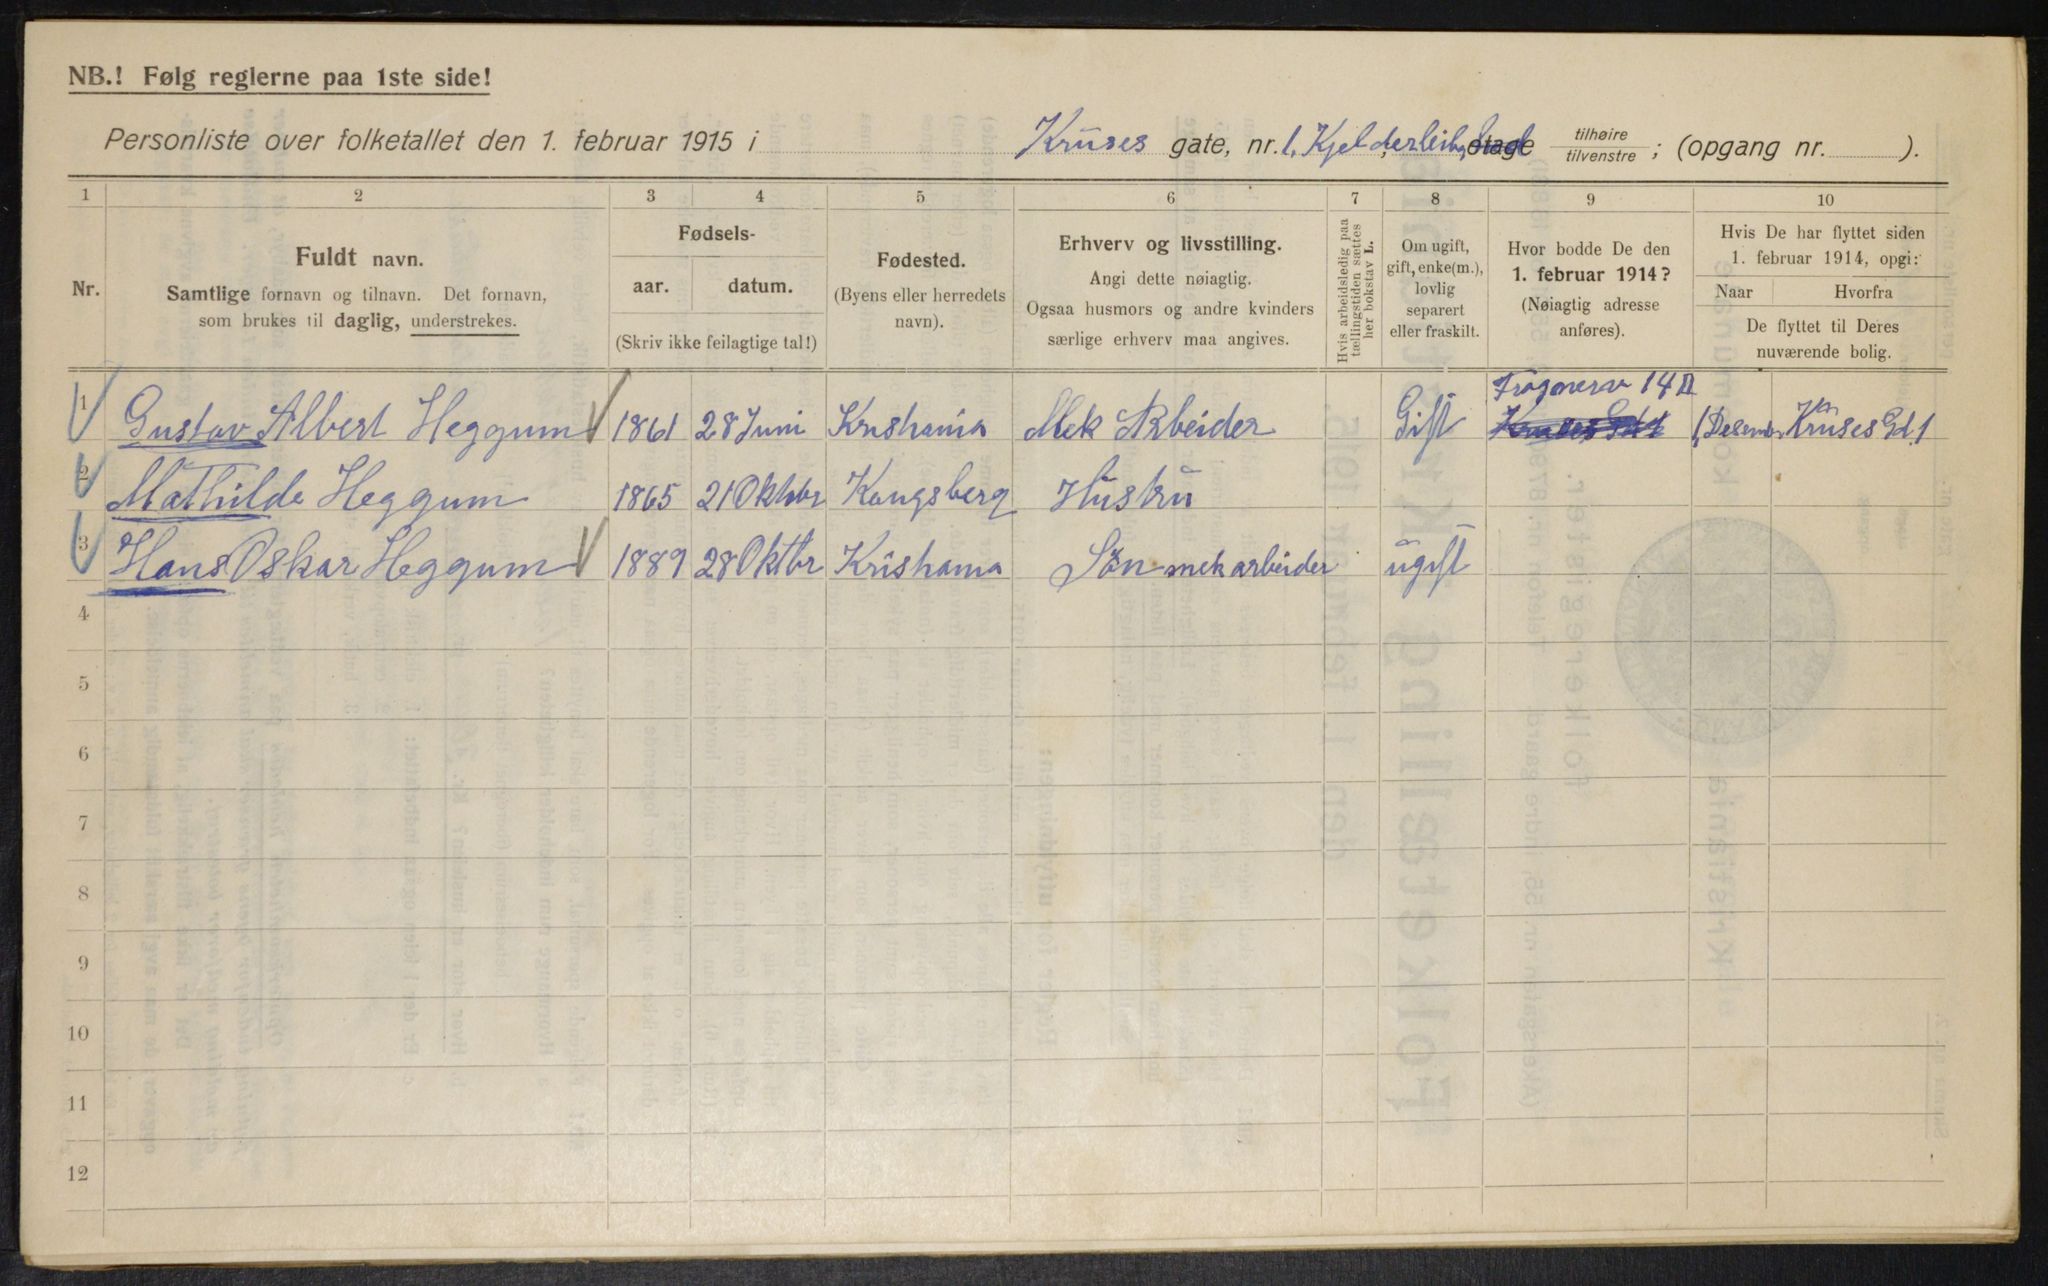 NB.! Følg reglerne paa 1ste side!
Personliste over folketallet den 1. februar 1915 i Kruses gate, nr. 1, etage tilhøire / tilvenstre ; (opgang nr. ).
1 2 3 4 5 6 7 8 9 10
Nr.
Fuldt navn.
Samtlige fornavn og tilnavn. Det fornavn,
som brukes til daglig, understrekes.
Fødsels-
aar. datum.
(Skriv ikke feilagtige tal!)
Fødested.
(Byens eller herredets
navn).
Erhverv og livsstilling.
Angi dette nøiagtig.
Ogsaa husmors og andre kvinders
særlige erhverv maa angives.
Hvis arbeidsledig paa
tællingstiden sættes
her bokstav L.
Om ugift,
gift, enke(m.),
lovlig
separert
eller fraskilt.
Hvor bodde De den
1. februar 1914?
(Nøiagtig adresse
anføres).
Hvis De har flyttet siden
1. februar 1914, opgi:
Naar Hvorfra
De flyttet til Deres
nuværende bolig.
Frognerv 14 II
1 Gustav Albert Heggum 1861 28 Juni Kristiania Mek Arbeider Gift 1 Desember Kruses Gd 1
2 Mathilde Heggum 1865 21 Oktobr Kongsberg Hustru
3 Hans Oskar Heggum 1889 28 Oktbr Kristiania Søn mekarbeider ugift
4
5
6
7
8
9
10
11
12